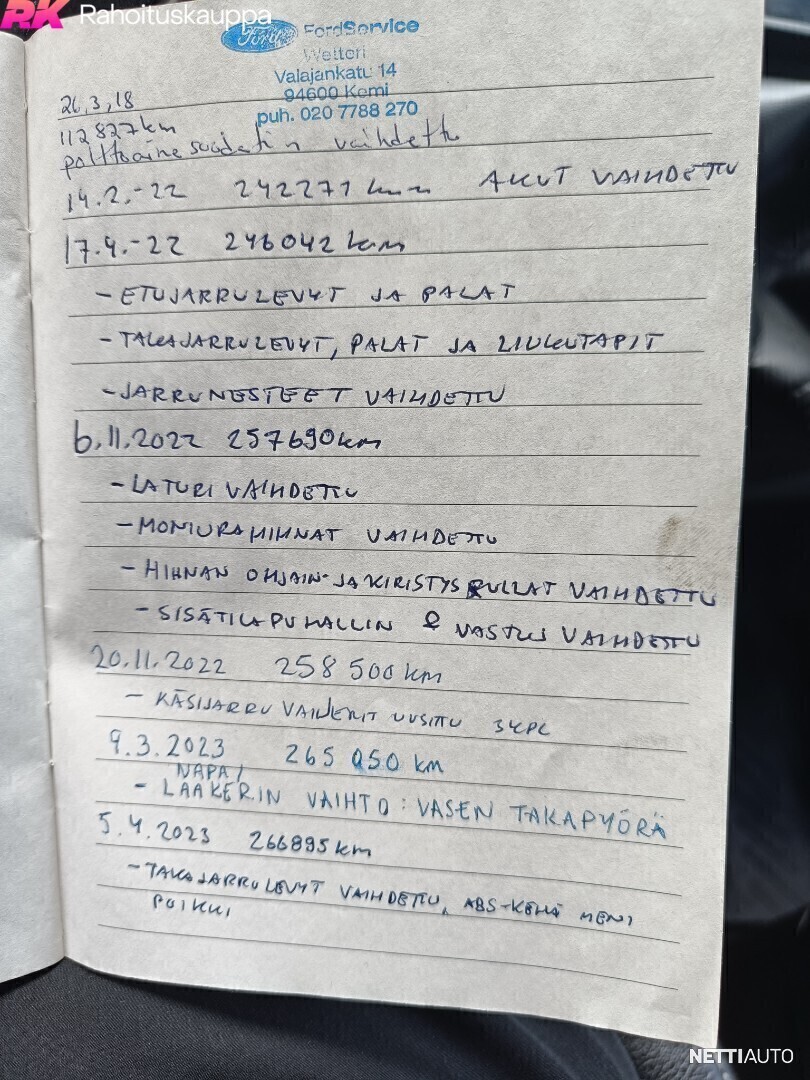 RK Rahoituskauppa
Ford FordService
Wetteri
Valajankatu 14
94600 Kemi
puh. 020 7788 270
26.3.18
112827km
polttoainesuodatin vaihdettu
14.2.-22 242271 km AKUT VAIHDETTU
17.4.-22 246042 km
- ETUJARRULEVYT JA PALAT
- TAKAJARRULEVYT, PALAT JA LIUKUTAPIT
- JARRUNESTEET VAIHDETTU
6.11.2022 257690km
- LATURI VAIHDETTU
- MONIURAHIHNAT VAIHDETTU
- HIHNAN OHJAIN- JA KIRISTYSRULLAT VAIHDETTU
- SISÄTILAPUHALLIN & VASTUS VAIHDETTU
20.11.2022 258 500km
- KÄSIJARRU VAIJERIT UUSITTU 3KPL
9.3.2023 265 050 km
NAPA/
- LAAKERIN VAIHTO: VASEN TAKAPYÖRÄ
5.4.2023 266895km
- TAKAJARRULEVYT VAIHDETTU, ABS-KEHÄ MENI
POIKKI
NETTIAUTO